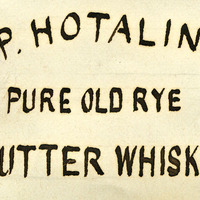 P. HOTALIN
PURE OLD RYE
UTTER WHISK